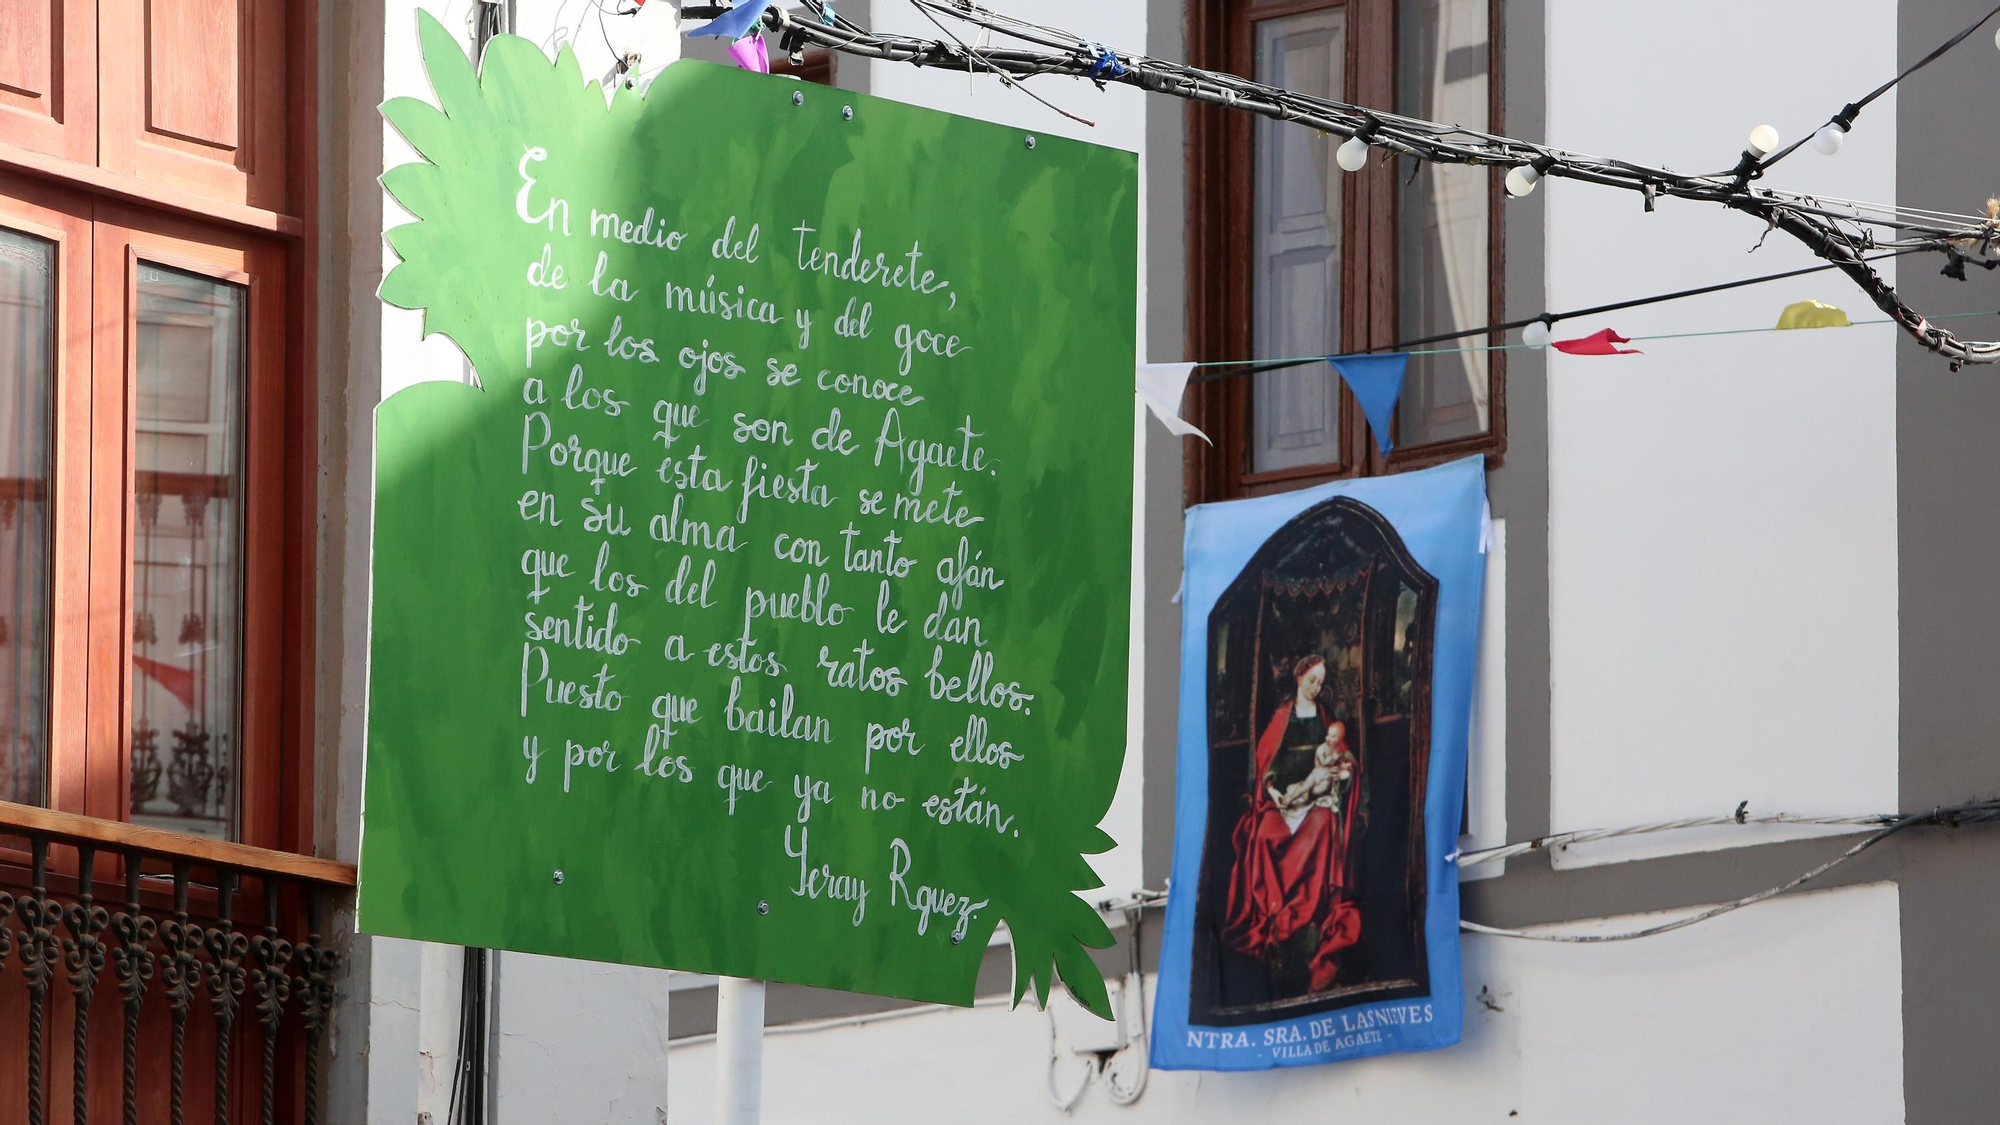 En medio del tenderete,
de la música y del goce
por los ojos se conoce
a los que son de Agaete.
Porque esta fiesta se mete
en su alma con tanto afán
que los del pueblo le dan
sentido a estos ratos bellos.
Puesto que bailan por ellos
y por los que ya no están.
Yeray Rguez.
NTRA. SRA. DE LAS NIEVES
- VILLA DE AGAETE -